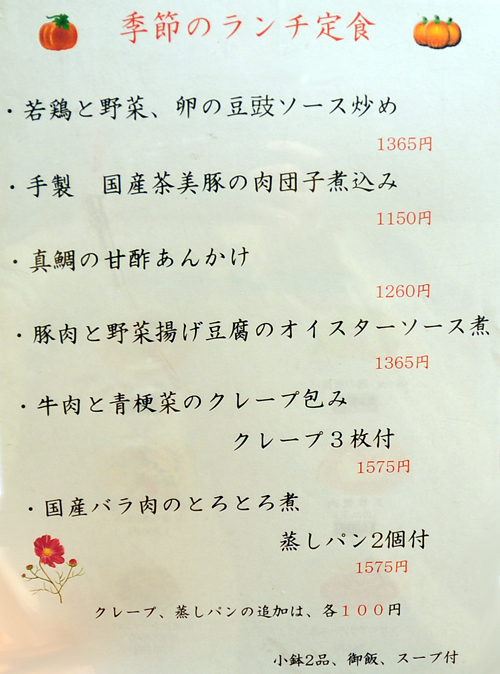 季節のランチ定食
・若鶏と野菜、卵の豆豉ソース炒め
1365円
・手製　国産茶美豚の肉団子煮込み
1150円
・真鯛の甘酢あんかけ
1260円
・豚肉と野菜揚げ豆腐のオイスターソース煮
1365円
・牛肉と青梗菜のクレープ包み
クレープ３枚付
1575円
・国産バラ肉のとろとろ煮
蒸しパン2個付
1575円
クレープ、蒸しパンの追加は、各１００円
小鉢2品、御飯、スープ付